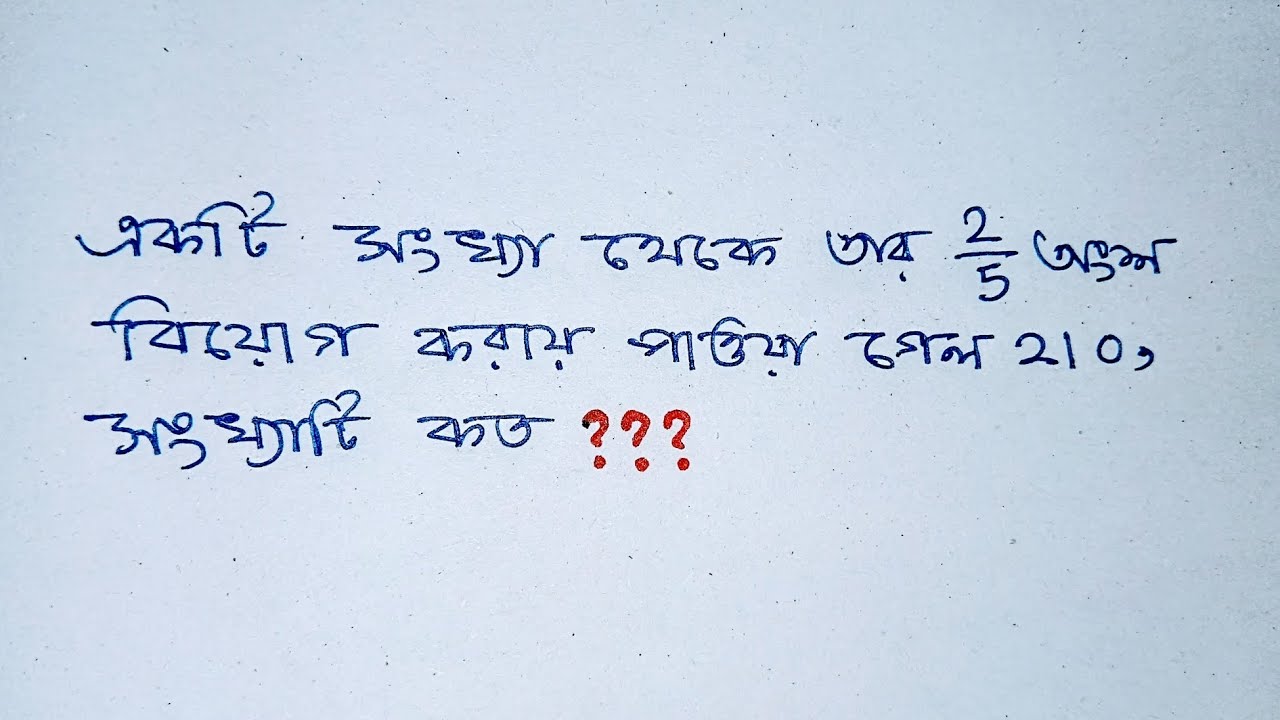 একটি সংখ্যা থেকে তার 2/5 অংশ
বিয়োগ করায় পাওয়া গেল 210,
সংখ্যাটি কত ???